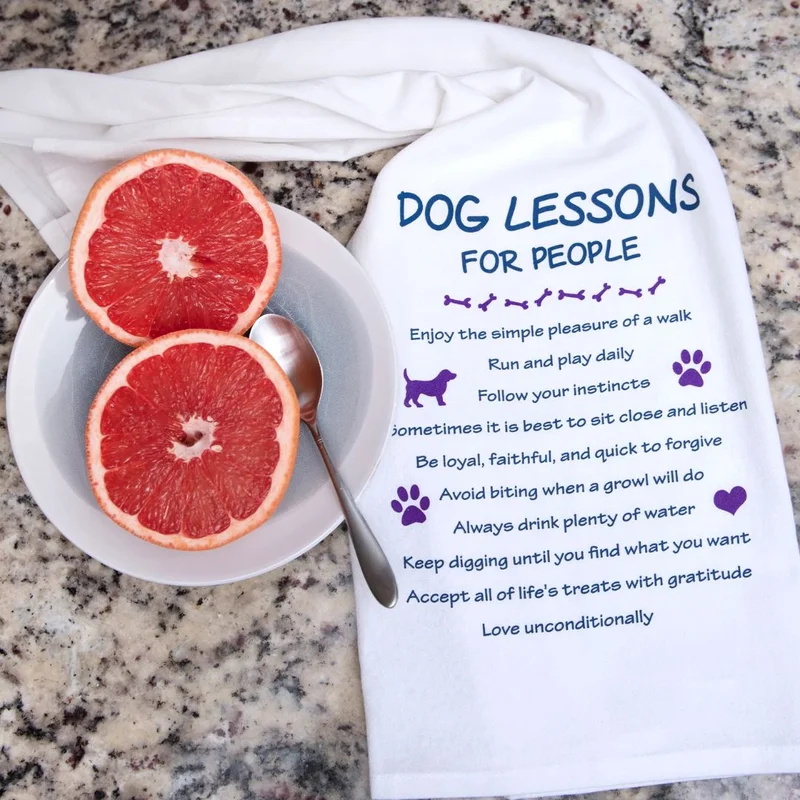 DOG LESSONS
FOR PEOPLE
Enjoy the simple pleasure of a walk
Run and play daily
Follow your instincts
Sometimes it is best to sit close and listen
Be loyal, faithful, and quick to forgive
Avoid biting when a growl will do
Always drink plenty of water
Keep digging until you find what you want
Accept all of life's treats with gratitude
Love unconditionally